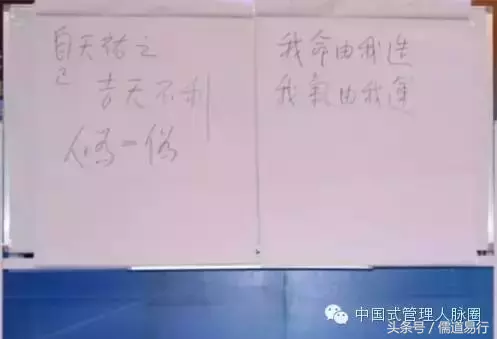 自天祐之
己
吉无不利
人為=偽
我命由我造
我氣由我運
中国式管理人脉圈
头条号/儒道易行